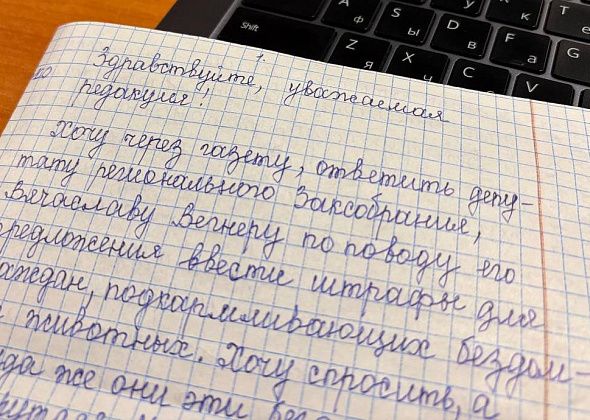 Shift
A
Ф
S
Ы
D
В
F
А
G
Z
Я
X
Ч
C
С
V
К
T
Е
1.
Здравствуйте, уважаемая
редакция!
Хочу через газету, ответить депу-
тату регионального Заксобрания,
Вячаславу Вегнеру по поводу его
предложения ввести штрафы для
граждан, подкармливающих бездом-
животных. Хочу спросить, а
же они эти